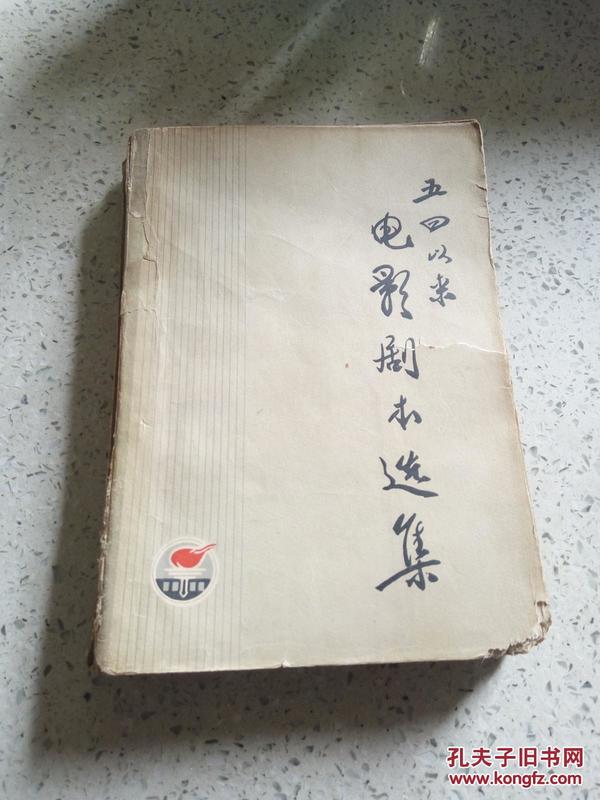 五四以来
电影剧本选集
孔夫子旧书网
www.kongfz.com